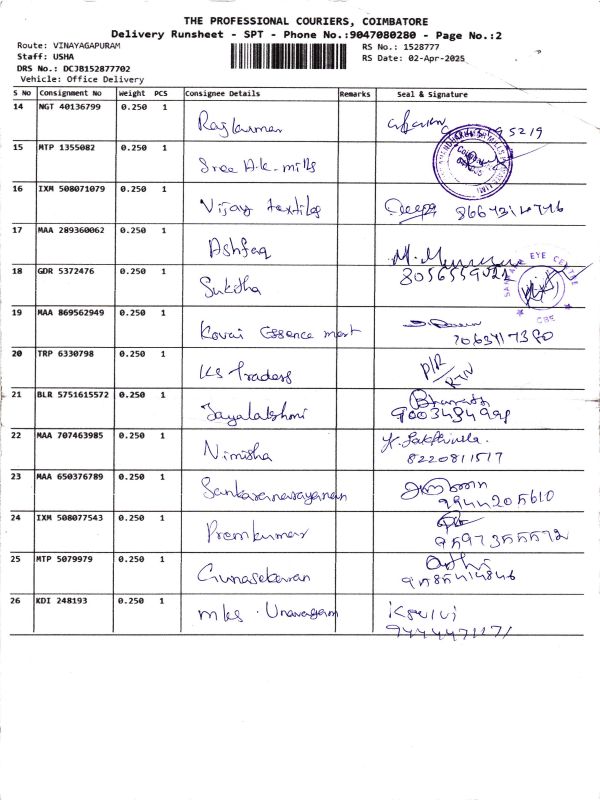 THE PROFESSIONAL COURIERS, COIMBATORE
Delivery Runsheet - SPT - Phone No.:9047080280 - Page No.:2
Route: VINAYAGAPURAM
Staff: USHA
DRS No.: DCJB152877702
Vehicle: Office Delivery
RS No.: 1528777
RS Date: 02-Apr-2025
S No Consignment No Weight PCS Consignee Details Remarks Seal & Signature
14 NGT 40136799 0.250 1 Rajkumar
15 MTP 1355082 0.250 1 Sree A.K. mills
16 IXM 508071079 0.250 1 Vijay textiles Deepa
17 MAA 289360062 0.250 1 Ashfaq
18 GDR 5372476 0.250 1 Suktha
EYE CENTRE
CBE
19 MAA 869562949 0.250 1 Kovai Essence mart
20 TRP 6330798 0.250 1 KS Traders
21 BLR 5751615572 0.250 1 Jayalakshmi Bharath
22 MAA 707463985 0.250 1 Nimisha
8220811517
23 MAA 650376789 0.250 1 Sankaranarayanan
9944205610
24 IXM 508077543 0.250 1 Premkumar
9597355572
25 MTP 5079979 0.250 1 Gunasekaran
26 KDI 248193 0.250 1 mks. Unavagam